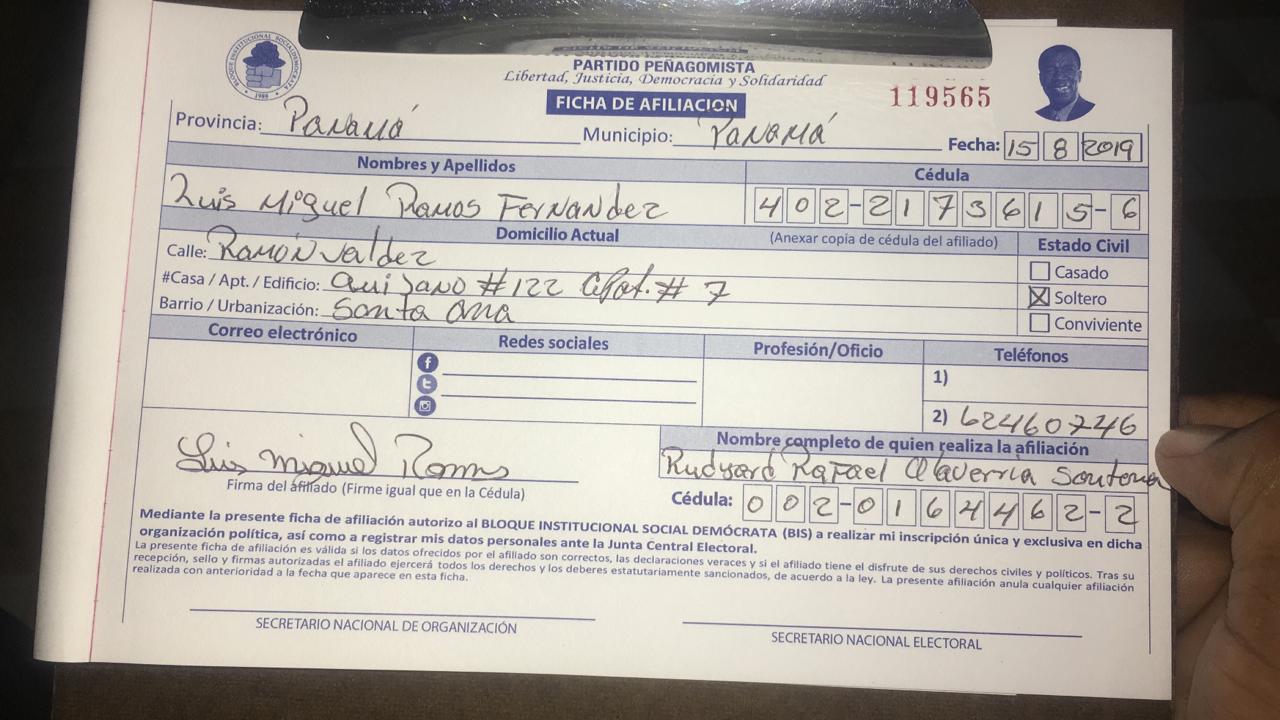 BLOQUE INSTITUCIONAL SOCIALDEMOCRATA
1988
PARTIDO PEÑAGOMISTA
Libertad, Justicia, Democracia y Solidaridad
FICHA DE AFILIACION
119565
Provincia: Panamá Municipio: Panamá Fecha: 15 8 2019
Nombres y Apellidos Cédula
Luis Miguel Ramos Fernandez 402-2173615-6
Domicilio Actual (Anexar copia de cédula del afiliado) Estado Civil
Calle: Ramón Valdez
Casado
#Casa / Apt. / Edificio: Quijano #122 Apat. # 7
Soltero
Barrio / Urbanización: Santa Ana
Conviviente
Correo electrónico Redes sociales Profesión/Oficio Teléfonos
1)
2) 62460746
Nombre completo de quien realiza la afiliación
Luis Miguel Ramos
Rudyard Rafael Olaverria Santana
Firma del afiliado (Firme igual que en la Cédula)
Cédula: 002-0164462-2
Mediante la presente ficha de afiliación autorizo al BLOQUE INSTITUCIONAL SOCIAL DEMÓCRATA (BIS) a realizar mi inscripción única y exclusiva en dicha
organización política, así como a registrar mis datos personales ante la Junta Central Electoral.
La presente ficha de afiliación es válida si los datos ofrecidos por el afiliado son correctos, las declaraciones veraces y si el afiliado tiene el disfrute de sus derechos civiles y políticos. Tras su
recepción, sello y firmas autorizadas el afiliado ejercerá todos los derechos y los deberes estatutariamente sancionados, de acuerdo a la ley. La presente afiliación anula cualquier afiliación
realizada con anterioridad a la fecha que aparece en esta ficha.
SECRETARIO NACIONAL DE ORGANIZACIÓN
SECRETARIO NACIONAL ELECTORAL